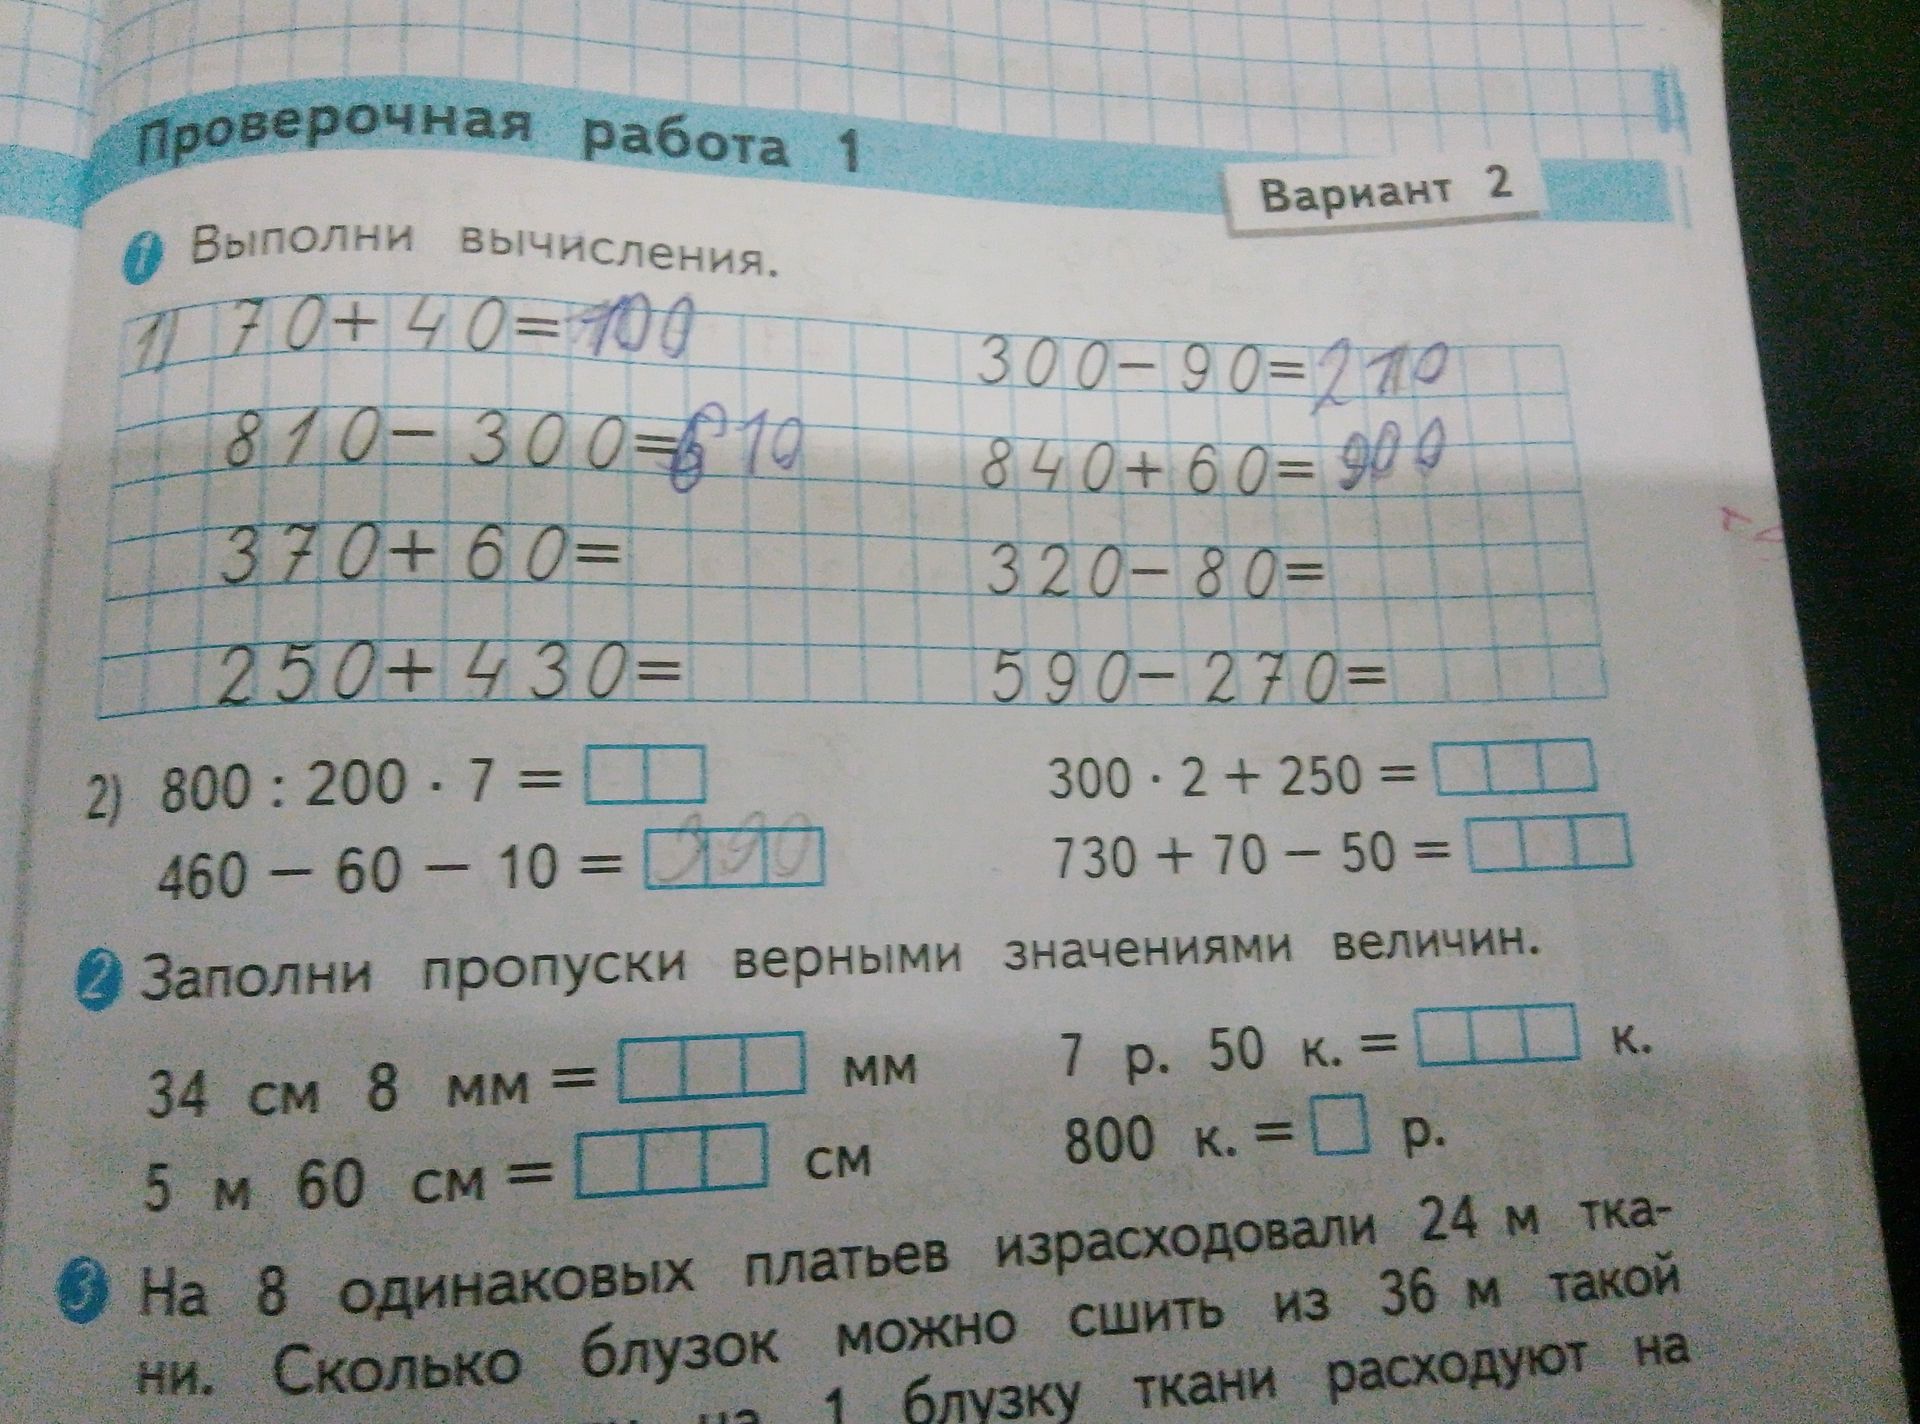 Проверочная работа 1
Вариант 2
1 Выполни вычисления.
1) 70+40=100 300-90=210
810-300=610 840+60=900
370+60= 320-80=
250+430= 590-270=
2) 800 : 200 · 7 = 300 · 2 + 250 =
460 – 60 – 10 = 390 730 + 70 – 50 =
2 Заполни пропуски верными значениями величин.
34 см 8 мм = мм 7 р. 50 к. = к.
5 м 60 см = см 800 к. = р.
3 На 8 одинаковых платьев израсходовали 24 м тка-
ни. Сколько блузок можно сшить из 36 м такой
на 1 блузку ткани расходуют на